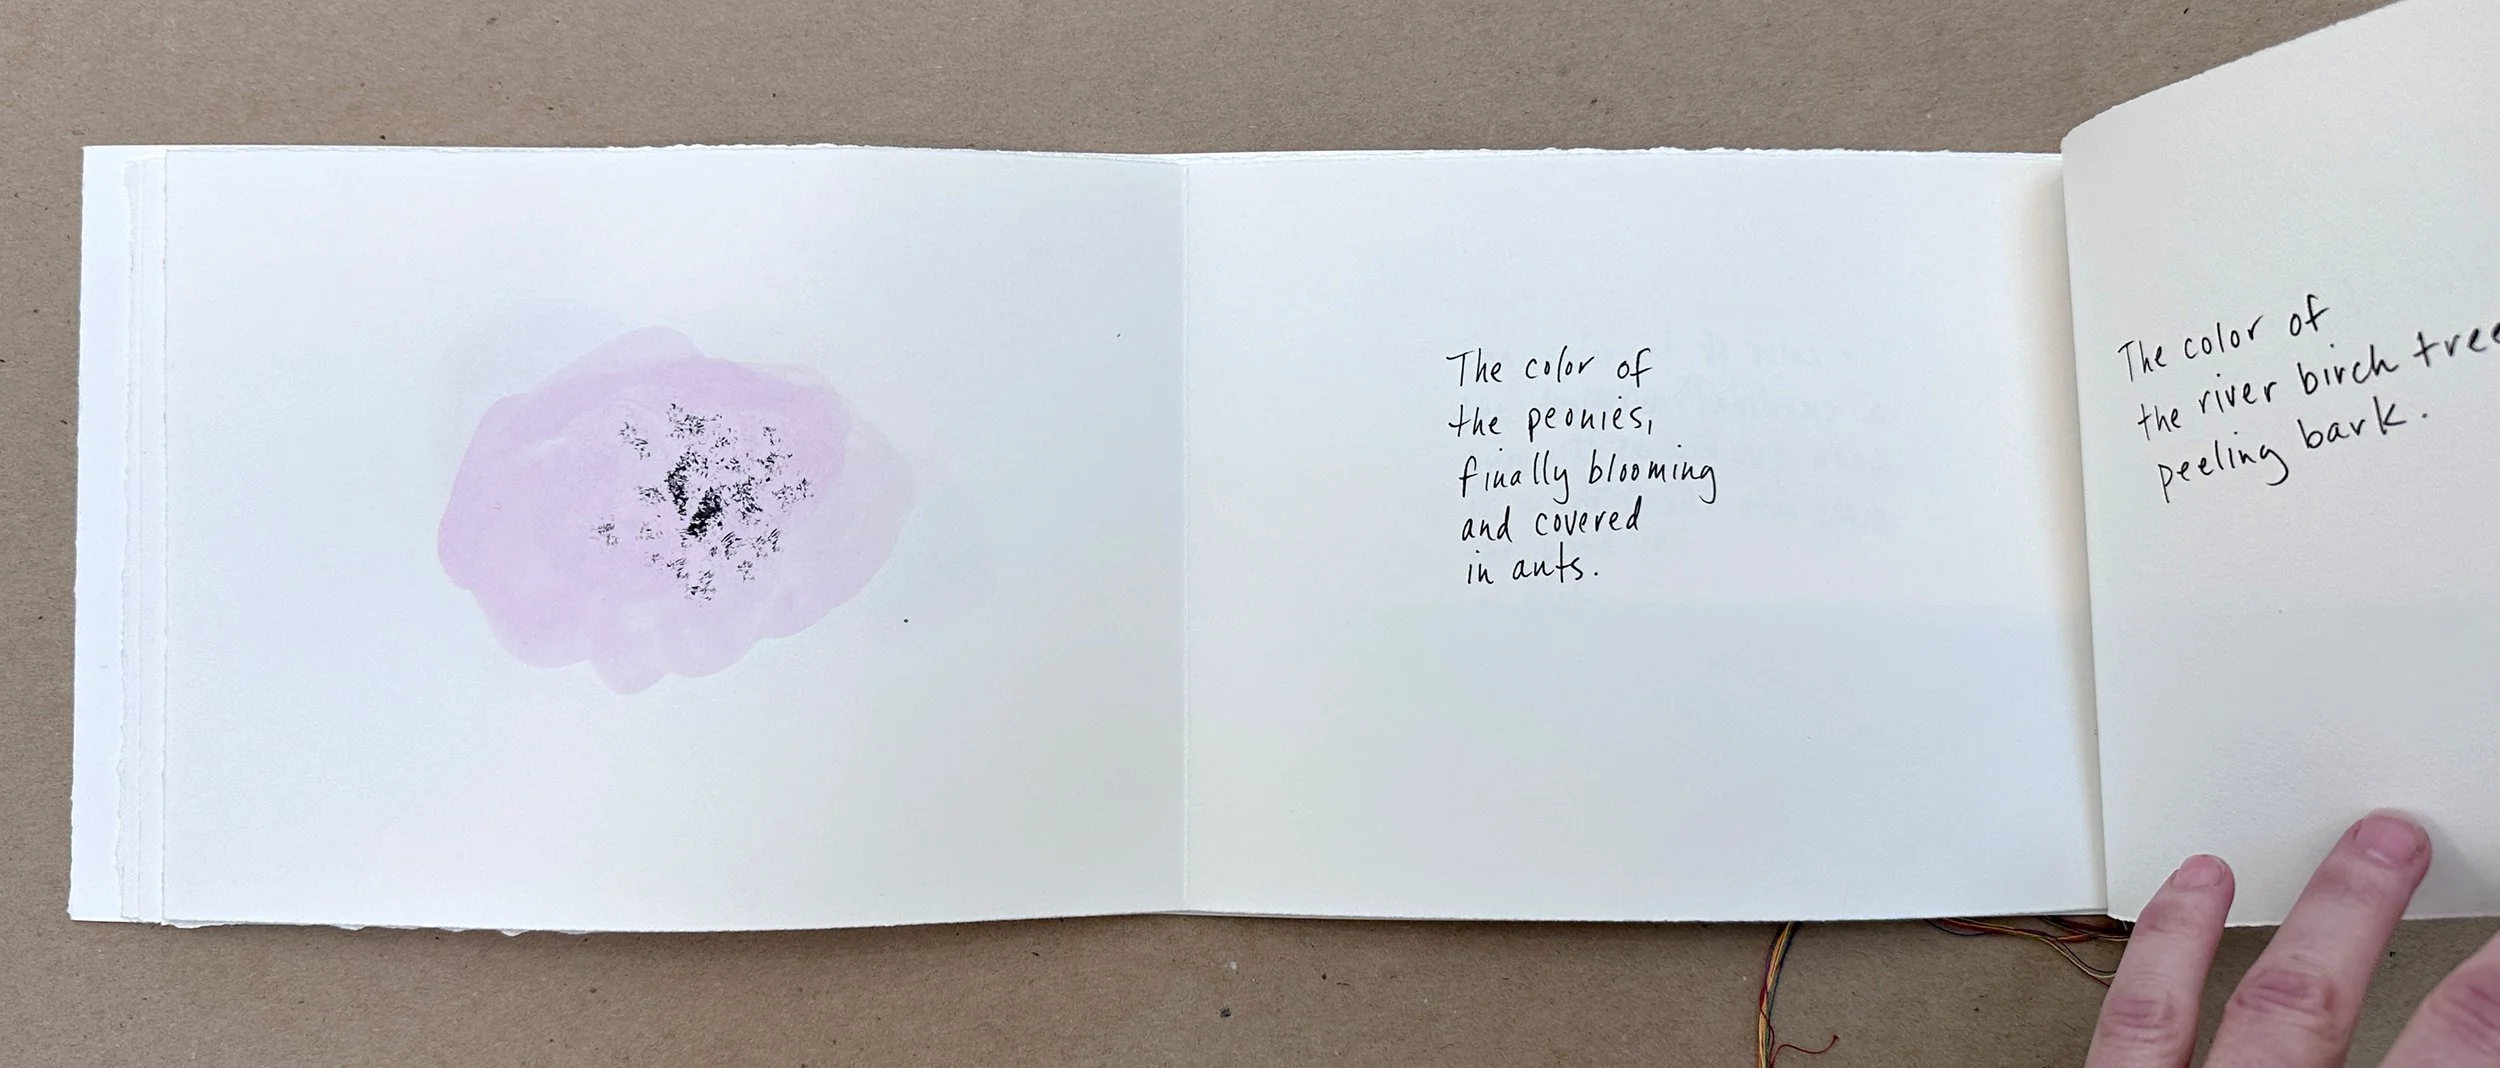 The color of
the peonies,
finally blooming
and covered
in ants.
The color of
the river birch tree
peeling bark.